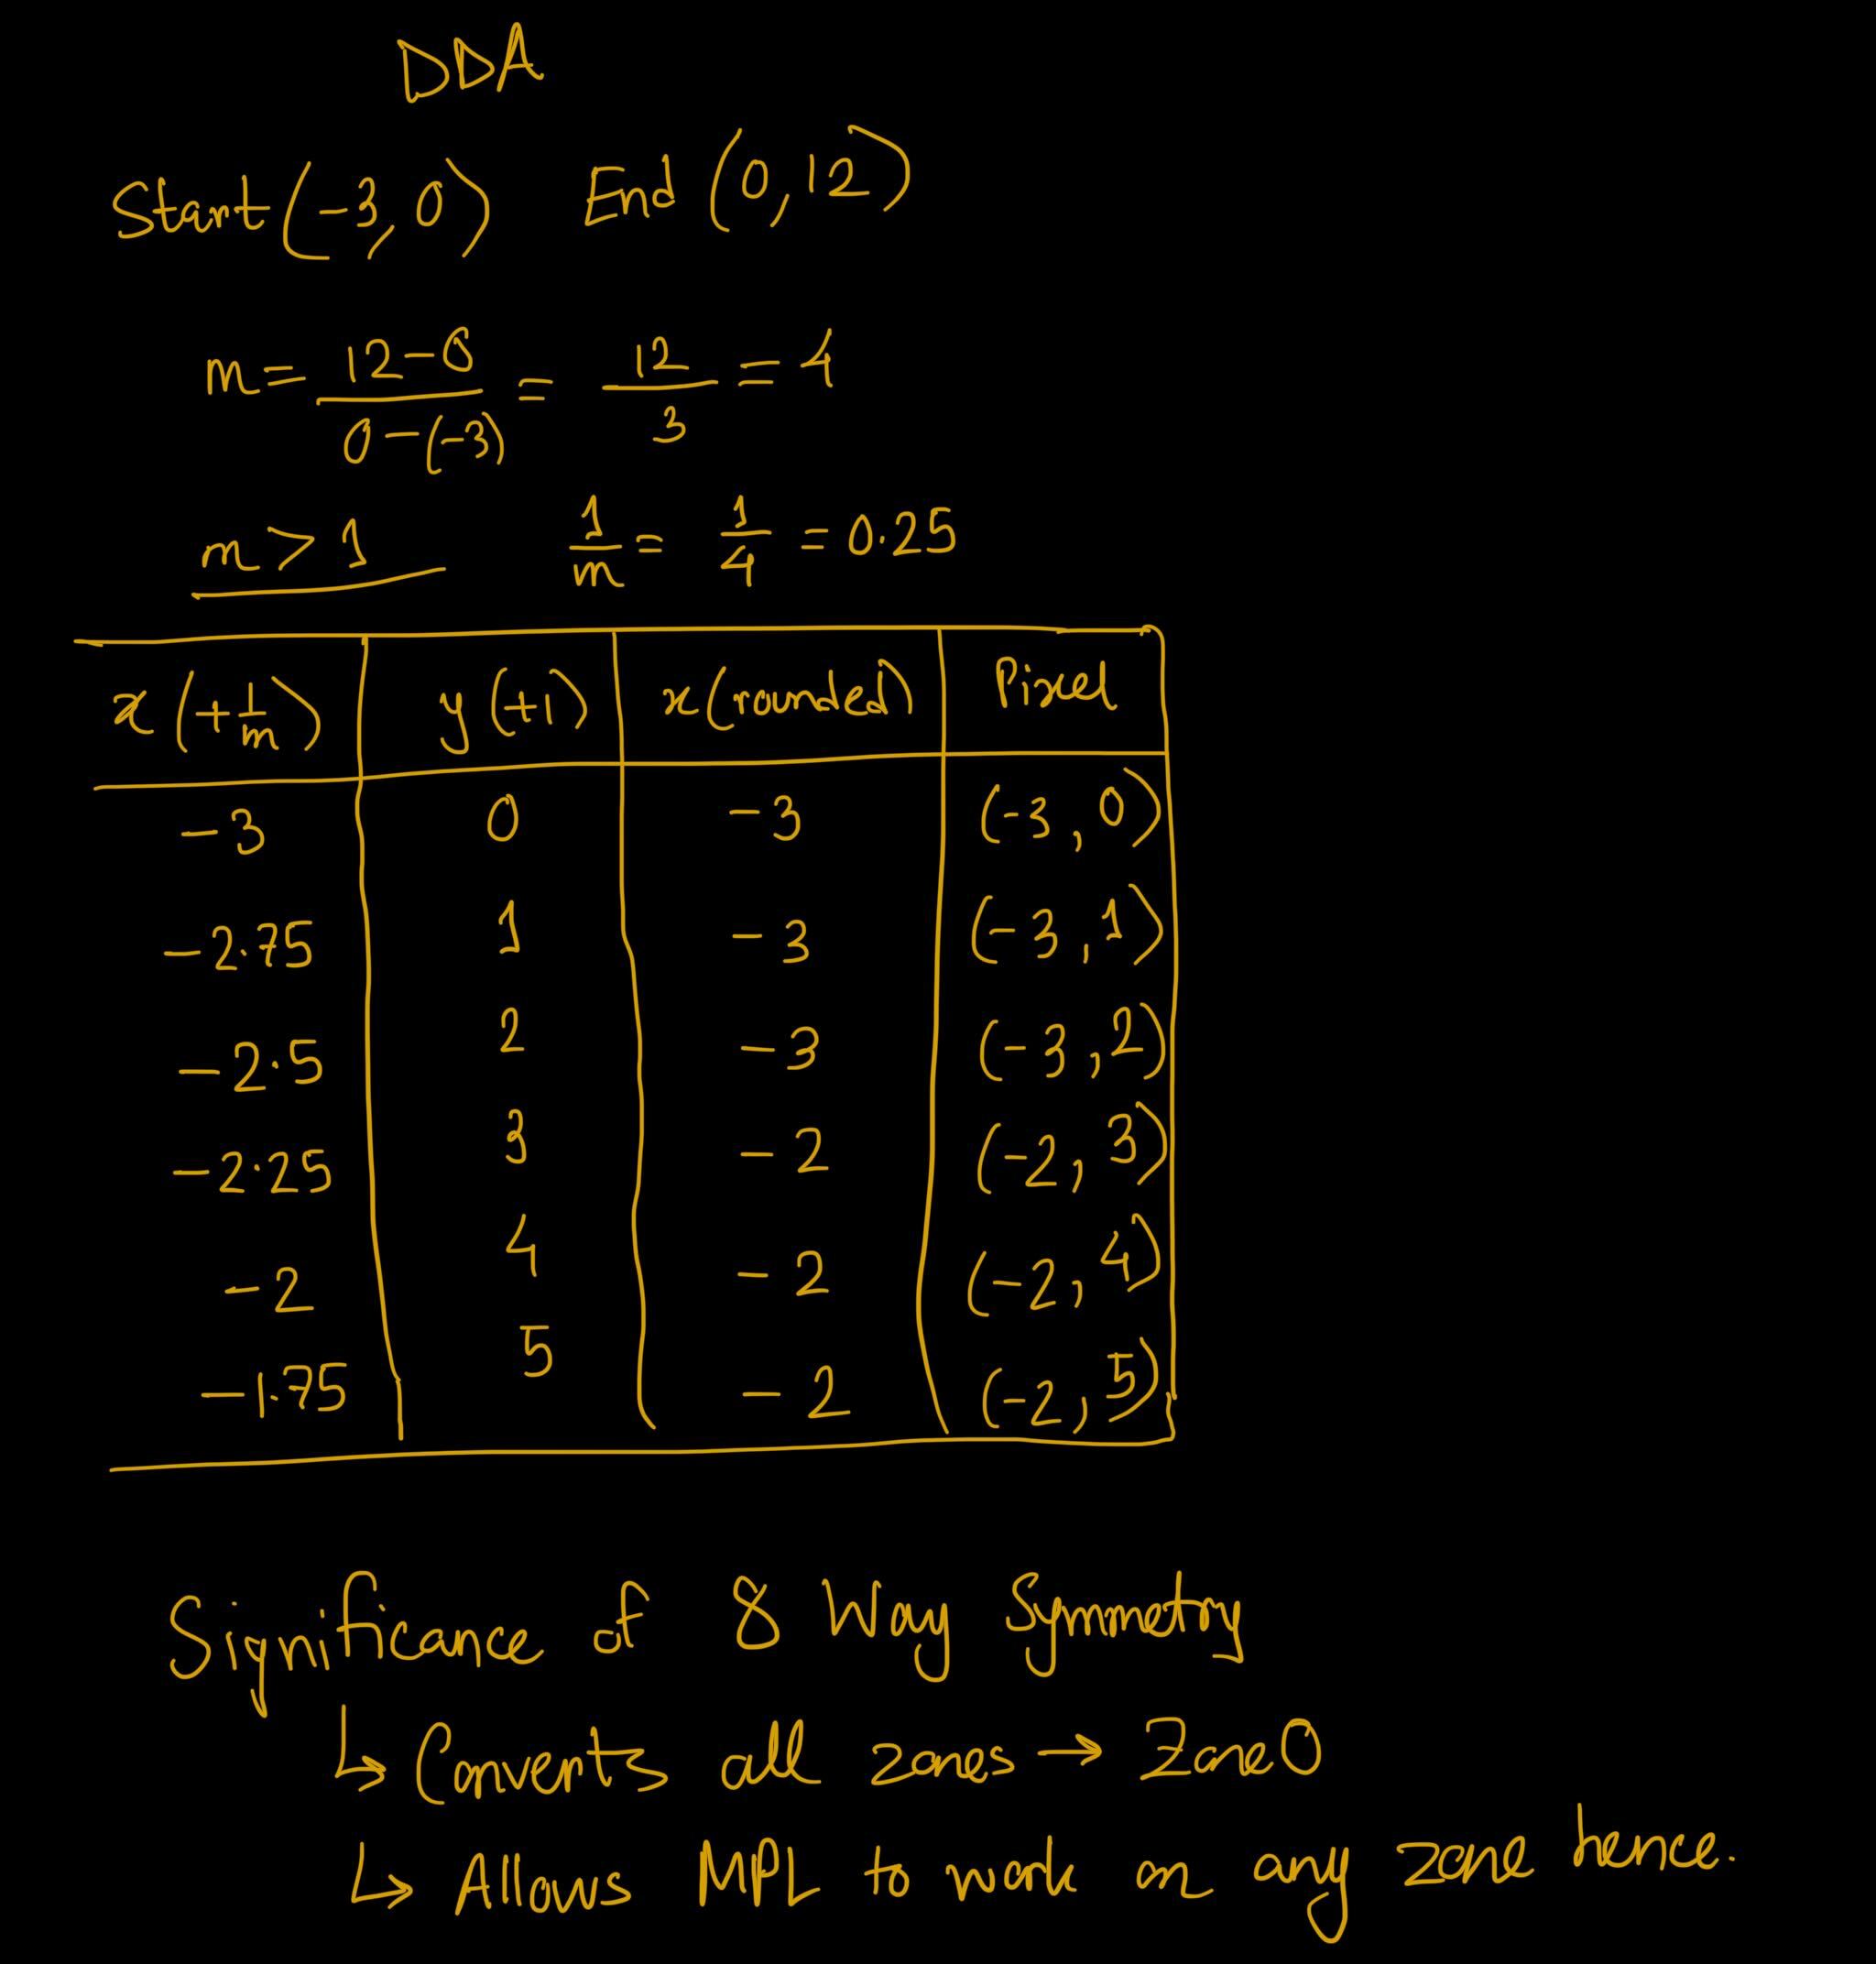 DDA
Start (-3, 0) End (0, 12)
m = 12-0 / 0-(-3) = 12 / 3 = 4
m > 1 1/m = 1/4 = 0.25
x (+1/m) y (+1) x (rounded) Pixel
-3 0 -3 (-3, 0)
-2.75 1 -3 (-3, 1)
-2.5 2 -3 (-3, 2)
-2.25 3 -2 (-2, 3)
-2 4 -2 (-2, 4)
-1.75 5 -2 (-2, 5)
Significance of 8 Way Symmetry
↳ Converts all zones → Zone 0
↳ Allows MPL to work on any zone hence.